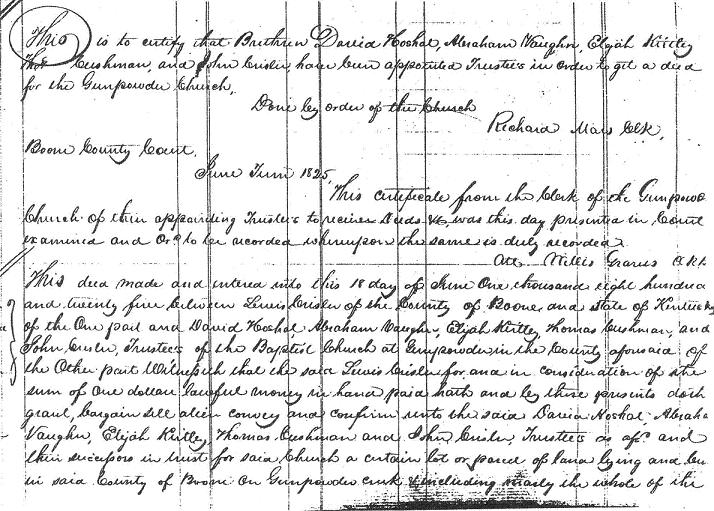 This is to certify that Brethren David Hoshal, Abraham Vaughn, Elijah Kirtley
Thos Cushman, and John Crisler, have been appointed Trustees in order to get a deed
for the Gunpowder Church,
Done by order of the Church
Richard Mars Clk,
Boone County Court,
June Term 1825,
This certificate from the Clerk of the Gunpowd
Church of their appointing Trustees to receive Deeds &c, was this day presented in Court
examined and Ord to be recorded whereupon the same is duly recorded
Att Willis Graves
This deed made and entered into this 18 day of June One thousand eight hundred
and twenty five between Lewis Crisler of the County of Boone and state of Kentucky
of the One part and David Hoshal Abraham Vaughn, Elijah Kirtley, Thomas Cushman, and
John Crisler, Trustees of the Baptist Church at Gunpowder in the County aforesaid of
the Other part Witnesseth that the said Lewis Crisler for and in consideration of the
sum of One dollar lawful money in hand paid hath and by these presents doth
grant, bargain sell alien convey and confirm unto the said David Hoshal, Abraha
Vaughn, Elijah Kirtley Thomas Cushman and John Crisler, Trustees as afsd and
their successors in trust for said Church a certain lot or parcel of land lying and be
in said County of Boone On Gunpowder creek & including nearly the whole of the